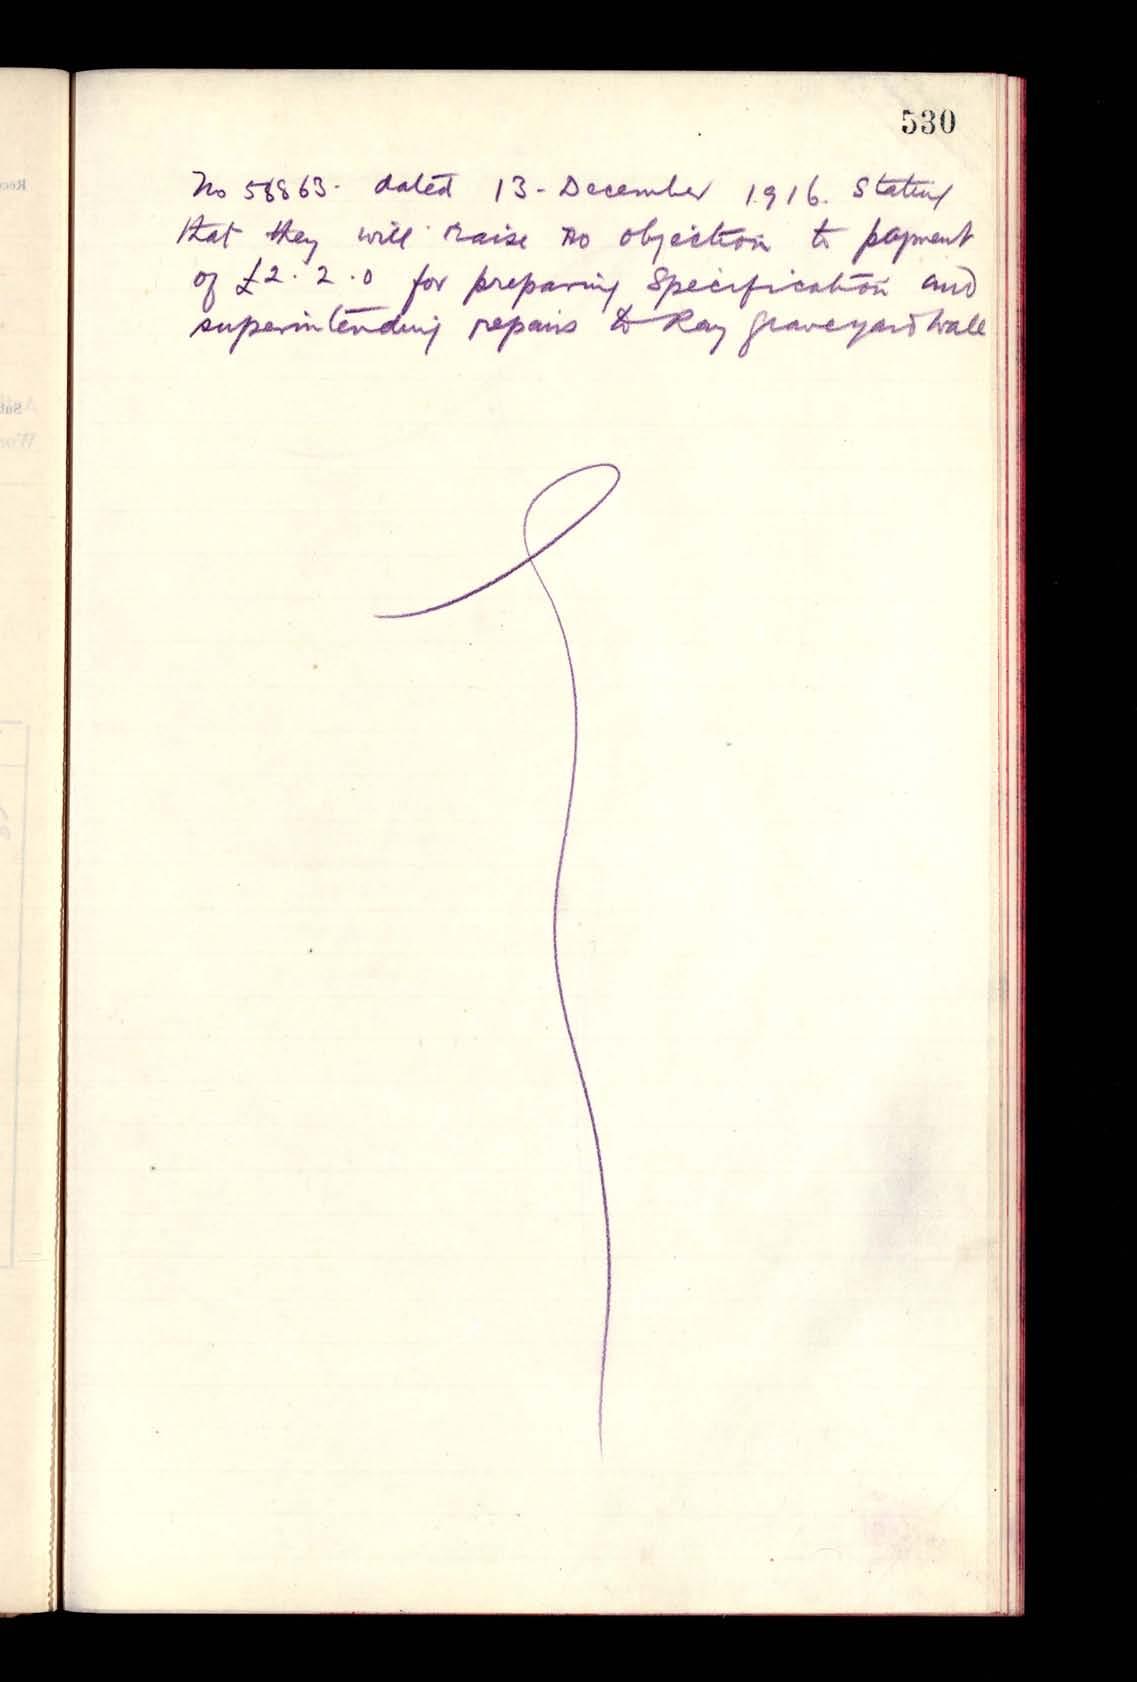 530
No 58863. dated 13 - December 1916. Stating
that they will raise no objection to payment
of £2.2.0 for preparing Specification and
superintending repairs to Ray graveyard wall